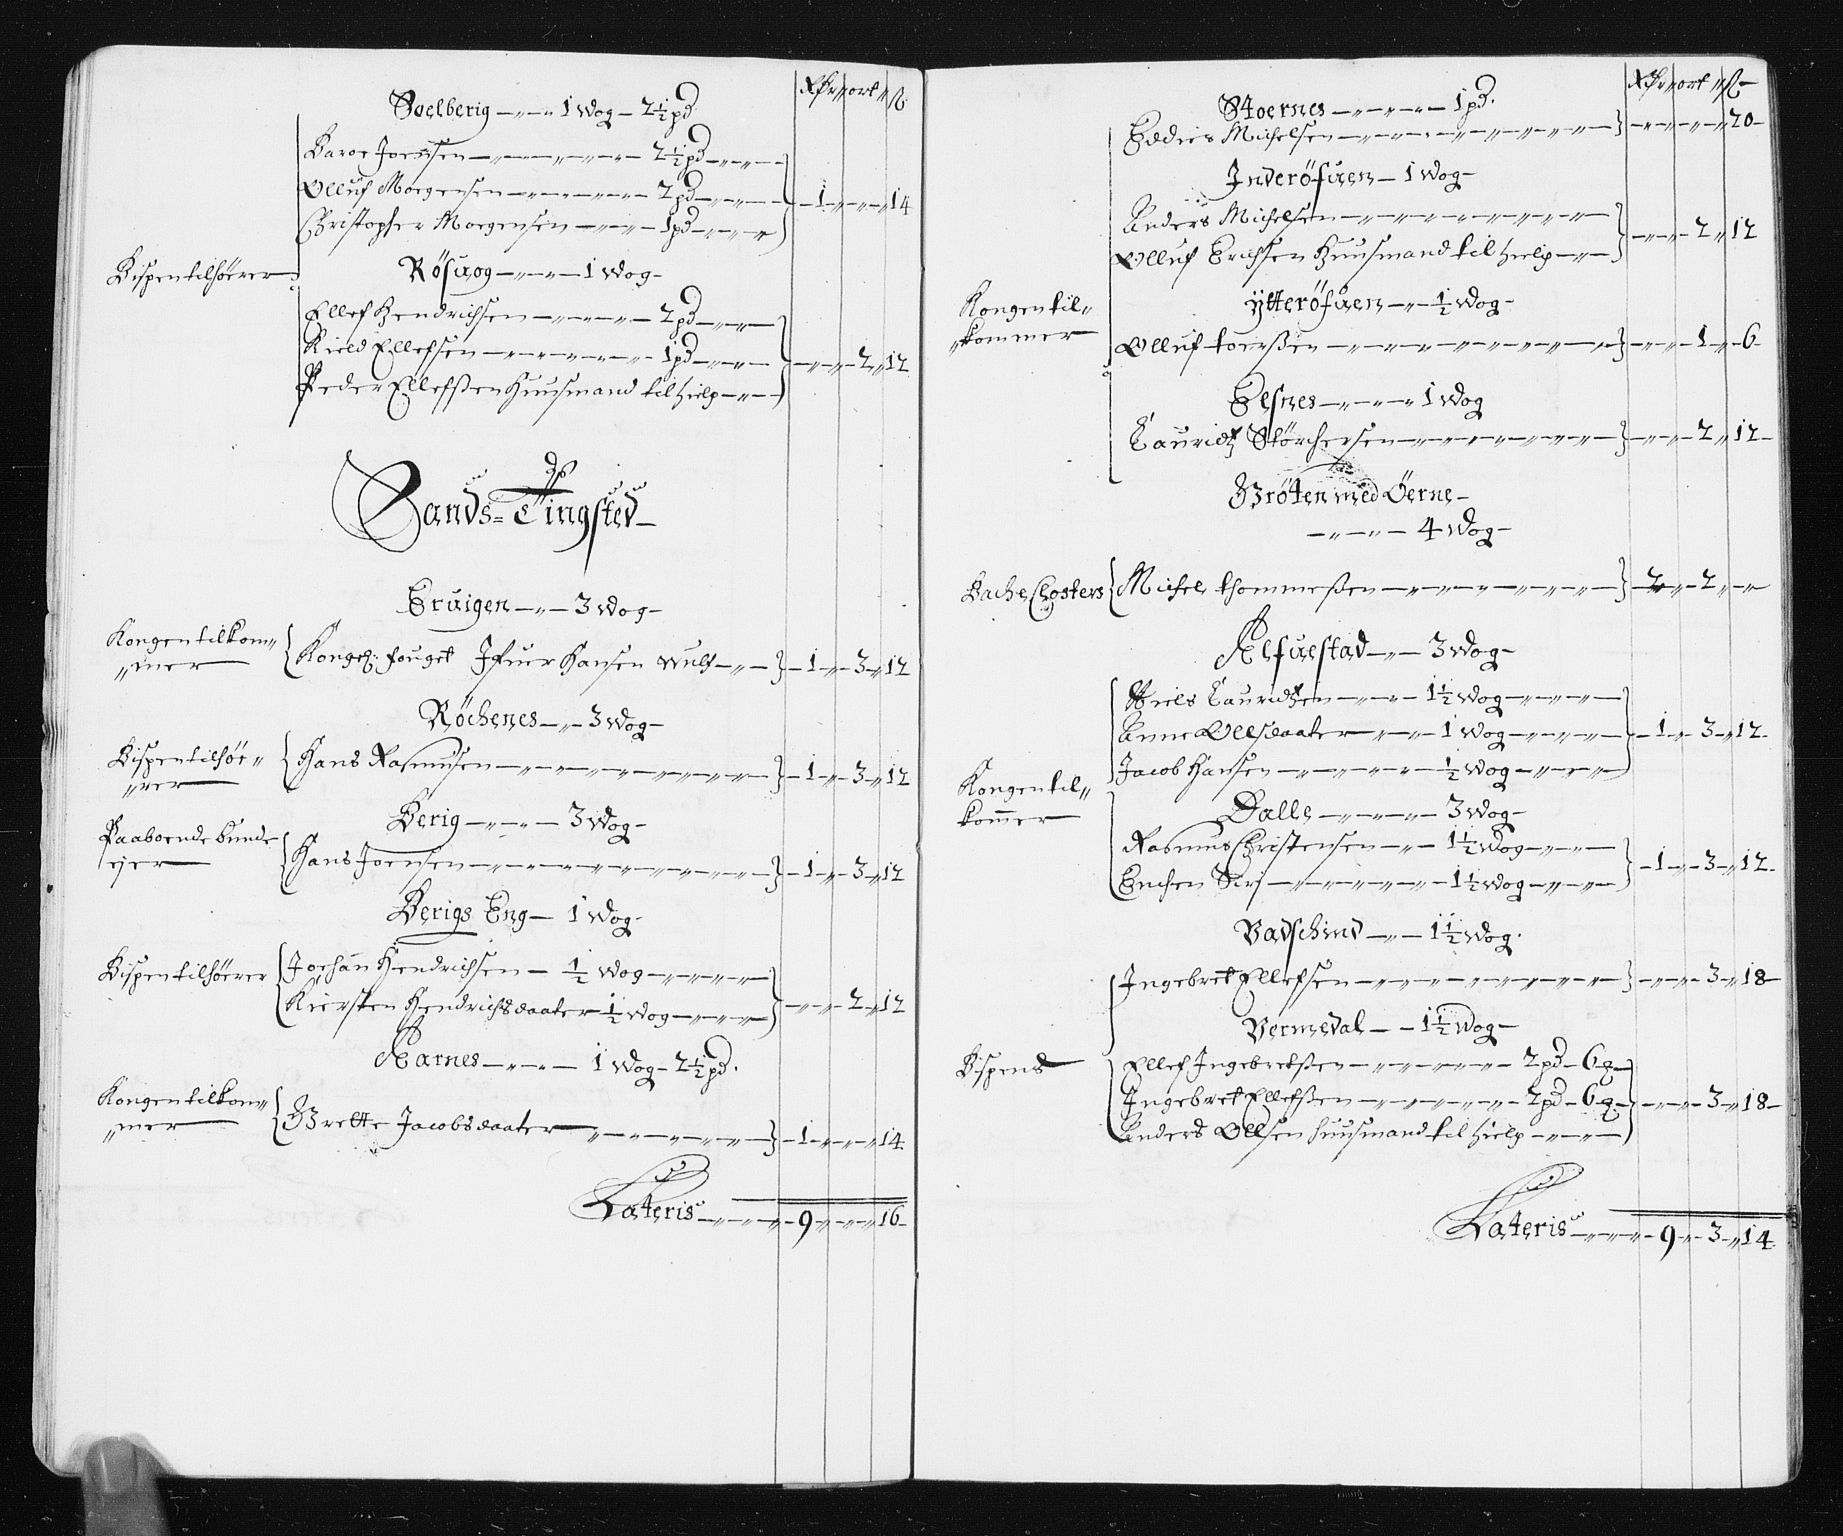 Rdr ort ß
Soelberig — 1 wog – 2½ pd
Baroe Joensen — 2½ pd
Olluf Moegensen — 2 pd — 1 — 14
Christopher Moegensen — 1 pd
Bispen tilhörer
Rösuog — 1 wog
Ellef Hendrichsen — 2 pd
Kield Ellefsen — 1 pd — 2 — 12
Peder Ellefsen Huusmand til hielp
Sands = Tingsted
Bruigen — 3 wog
Kongen tilkom„
„mer
Kongel: fouget Ifuer Hansen Wulf — 1 — 3 — 12
Röchenes — 3 wog
Bispen tilhöe„
„rer
Hans Rasmusen — 1 — 3 — 12
Berig — 3 wog
Paaboende bunde
ejer
Hans Joensen — 1 — 3 — 12
Berigs Eng — 1 wog
Bispen tilhöerer
Joehan Hendrichsen — ½ wog
Kiersten Hendrichsdaater ½ wog — 2 — 12
Aarnes — 1 wog – 2½ pd.
Kongen tilkom„
„mer
Grette Jacobsdaater — 1 — 14
Lateris — 9 — 16
Rdr ort ß
Stoernes — 1 pd.
Endres Michelsen — 20
Inderöfuen — 1 wog
Anders Michelsen
Olluf Erichsen Huusmand til hielp — 2 — 12
Kongen til„
„kommer
Ytteröfuen — ½ wog
Olluf toersen — 1 — 6
Elsnes — 1 wog
Lauridtz Störchersen — 2 — 12
Gröten med Öerne
— 4 wog
Bache Closters
Michel thommesen — 2 — 2
Aelfuestad — 3 wog
Niels Lauridtzen — 1½ wog
Anne Ollsdaater — 1 wog — 1 — 3 — 12
Jacob Hansen — ½ wog
Kongen til„
kommer
Dalle — 3 wog
Rasmus Christensen — 1½ wog
Enchen Siri — 1½ wog — 1 — 3 — 12
Badschind — 1½ wog
Ingebret Ellefsen — 3 — 18
Vermedal — 1½ wog
Bispens
Ellef Ingebretsen — 2 pd – 6
Ingebret Ellefsen — 2 pd – 6 — 3 — 18
Anders Ollsen huusmand til hielp
Lateris — 9 — 3 — 14